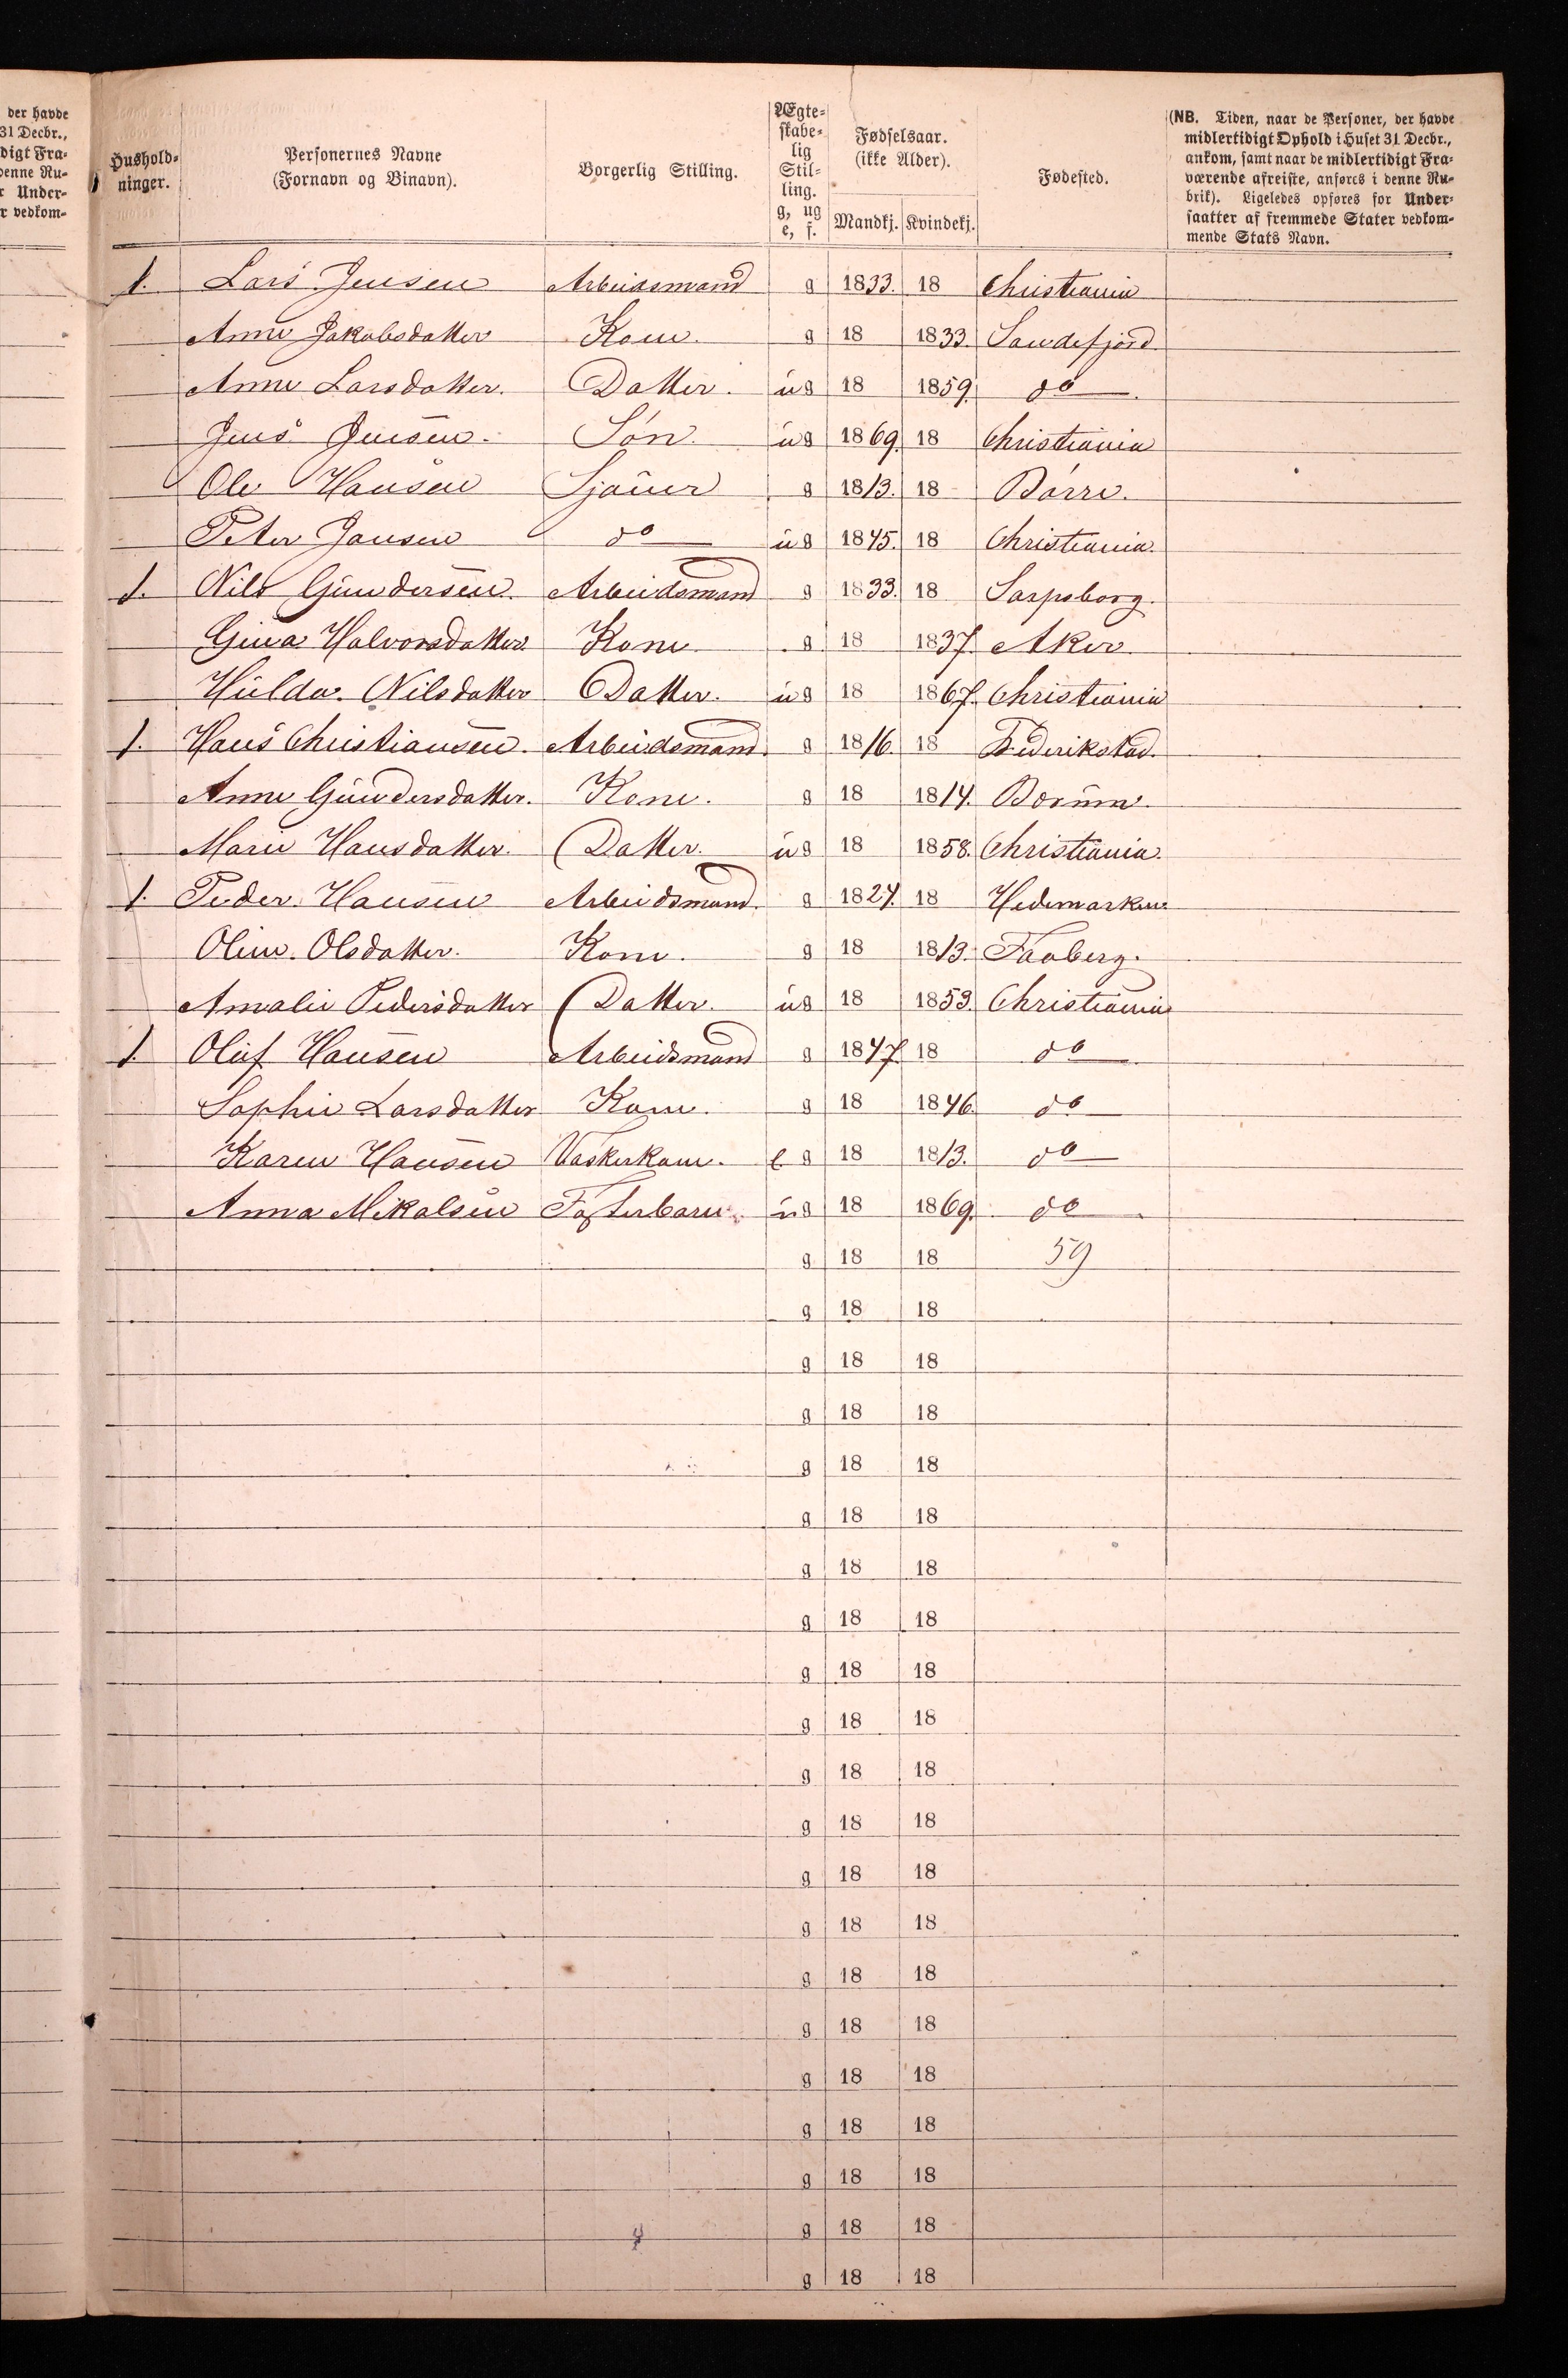 der havde
31 Decbr.,
digt Fra-
denne Ru-
r Under-
r vedkom-
Hushold-
ninger.
Personernes Navne
(Fornavn og Binavn).
Borgerlig Stilling.
Ægte-
skabe-
lig
Stil-
ling.
g, ug
e, f.
Fødselsaar.
(ikke Alder).
Mandkj. Kvindekj.
Fødested.
(NB. Tiden, naar de Personer, der havde
midlertidigt Ophold i Huset 31 Decbr.,
ankom, samt naar de midlertidigt Fra-
værende afreiste, anføres i denne Ru-
brik). Ligeledes opføres for Under-
saatter af fremmede Stater vedkom-
mende Stats Navn.
1. Lars Jensen Arbeidsmand g 1833. 18 Christiania
Anne Jakobsdatter Kone. g 18 1833. Sandefjord
Anne Larsdatter. Datter. ug 18 1859. do
Jens Jensen. Søn. ug 1869. 18 Christiania
Ole Hansen Sjauer g 1813. 18 Børre.
Peter Jansen do ug 1845. 18 Christiania.
1. Nils Gundersen. Arbeidsmand g 1833. 18 Sarpsborg.
Gina Halvorsdatter. Kone. g 18 1837. Aker.
Hulda Nilsdatter Datter. ug 18 1867. Christiania
1. Hans Christiansen. Arbeidsmand. g 1816. 18 Frederikstad.
Anne Gundersdatter. Kone. g 18 1814. Bærum.
Marie Hansdatter. Datter. ug 18 1858. Christiania.
1. Peder Hansen Arbeidsmand. g 1824. 18 Hedemarken
Oline Olsdatter. Kone. g 18 1813. Faaberg.
Amalie Pedersdatter Datter. ug 18 1853. Christiania
1. Oluf Hansen Arbeidsmand g 1847. 18 do
Sophie Larsdatter Kone. g 18 1846. do
Karen Hansen Vaskerkone. e g 18 1813. do
Anna Mikalsen Fosterbarn. ug 18 1869. do
g 18 18 59
g 18 18
g 18 18
g 18 18
g 18 18
g 18 18
g 18 18
g 18 18
g 18 18
g 18 18
g 18 18
g 18 18
g 18 18
g 18 18
g 18 18
g 18 18
g 18 18
g 18 18
g 18 18
g 18 18
g 18 18